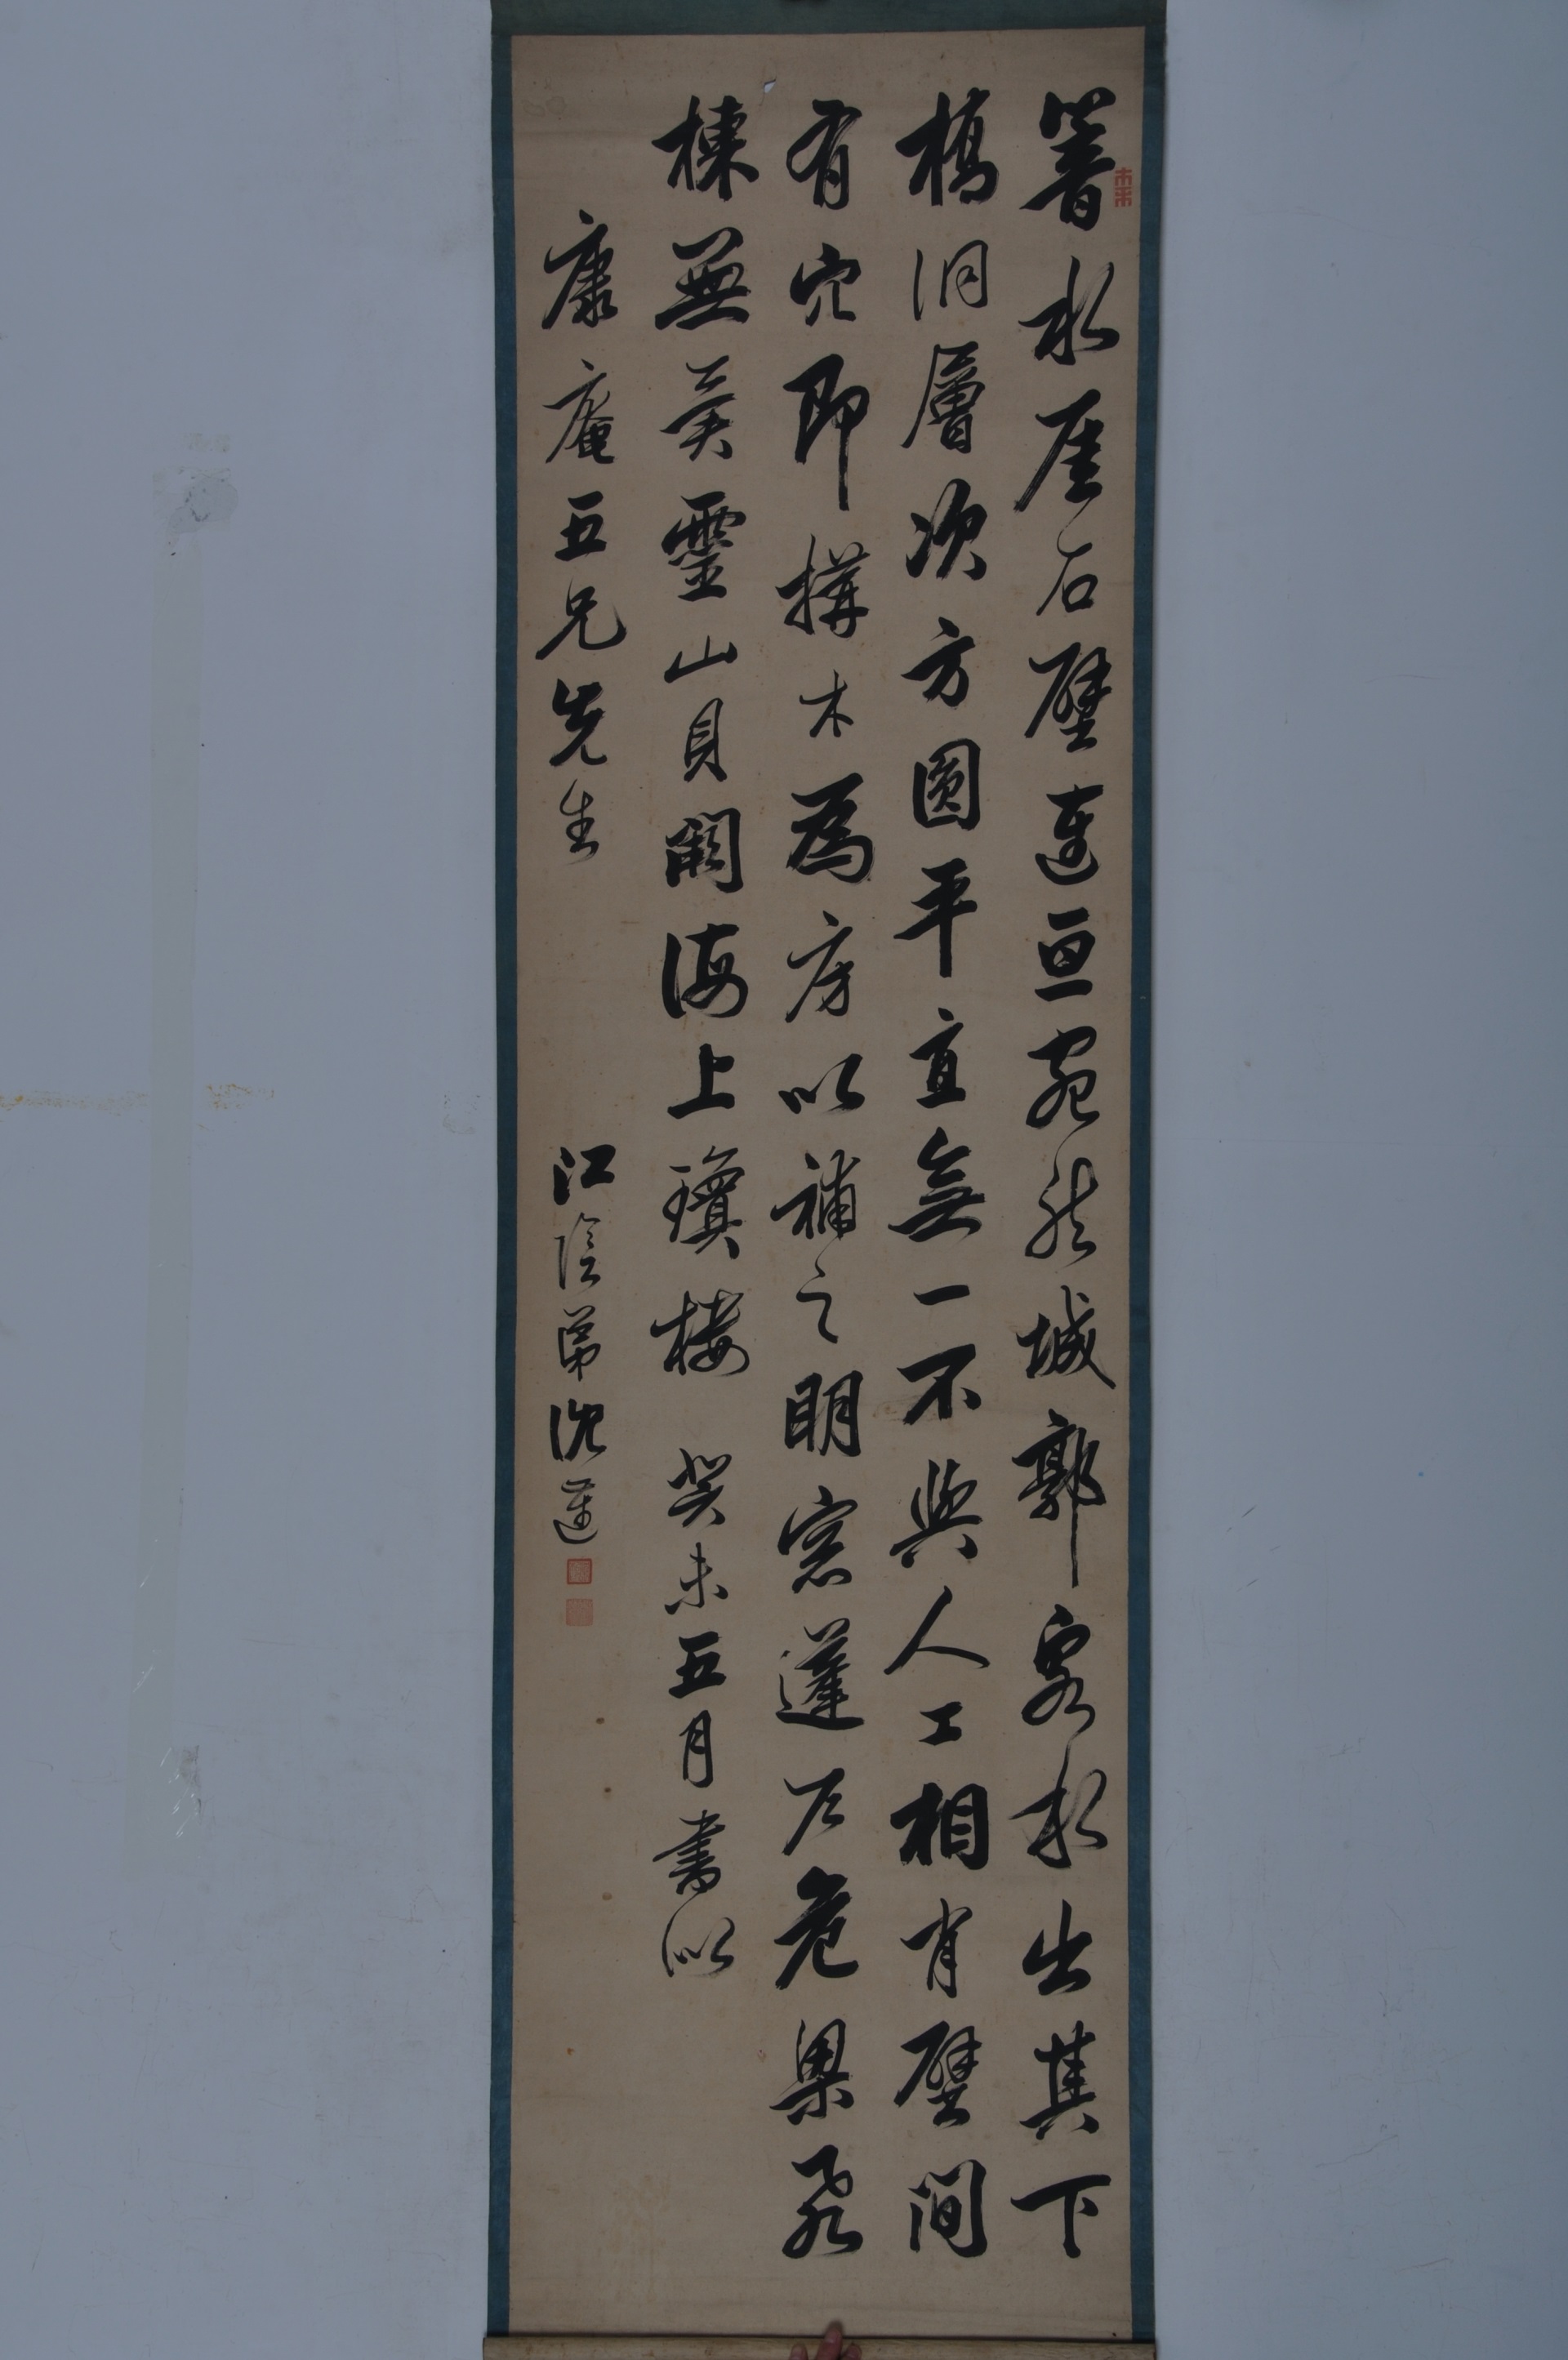 箸水崖石壁連亘宛然城郭察水出其下
橋洞層次方圓平直無一不與人工相肖壁間
有穴即搆木為房以補之明窓蓬戶危梁飛
棟無異靈山貝闕海上瓊樓 癸未五月書似
康庵五兄先生
江陰弟沈蓮